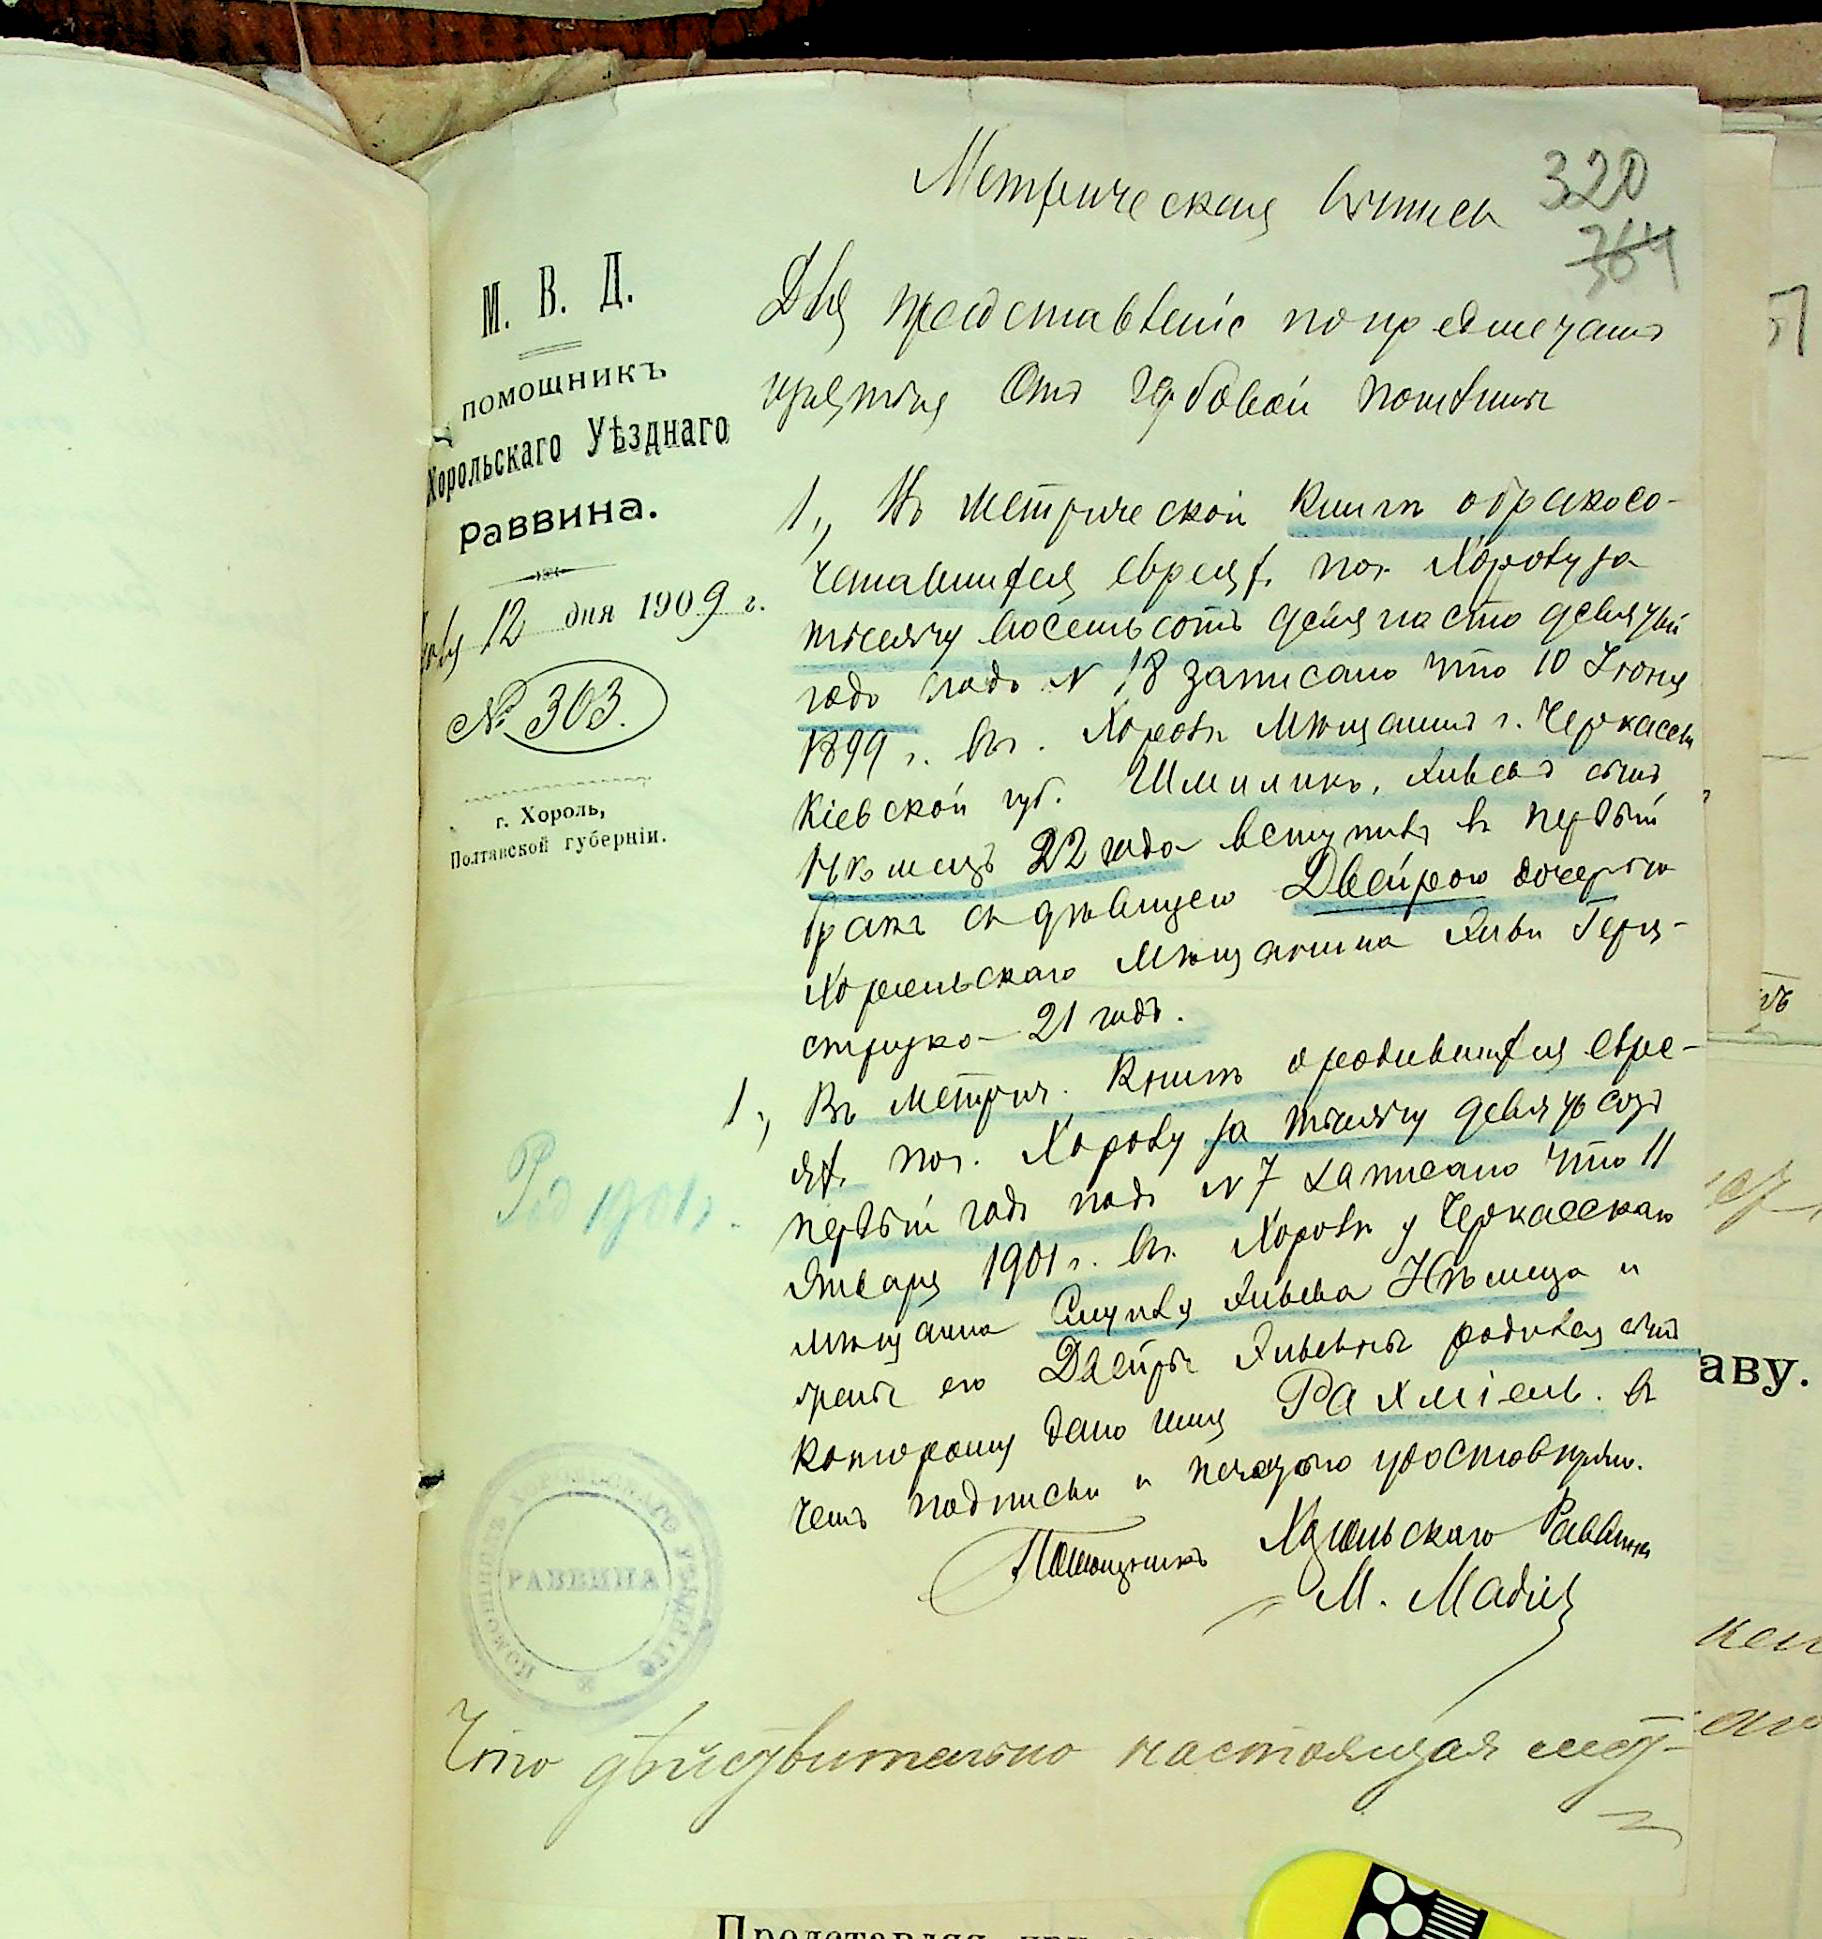 Метрическая выпись
320
364
Для представленія по предмету
изъятія отъ гербовой пошлины
М. В. Д.
ПОМОЩНИКЪ
Хорольскаго Уѣзднаго
раввина.
12 дня 1909 г.
№ 303.
г. Хороль,
Полтавской губерніи.
1., Въ метрической книгѣ о бракосо-
четавшихся евреях. по г. Хоролу за
тысячу восемьсотъ девяносто девятый
годъ подъ N 18 записано что 10 Іюня
1899 г. въ г. Хоролѣ Мѣщанинъ г. Черкассы
Кіевской губ. Шмиликъ, Ливевъ сынъ
Нѣмецъ 22 года вступилъ въ первый
бракъ съ дѣвицею Двейрою дочерью
Хорольскаго Мѣщанина Ливи Гери-
струка 21 годъ.
1., Въ метрич. книгѣ о родившихся евре-
ях. по г. Хоролу за тысячу девятьсотъ
первый годъ подъ N 7 записано что 11
Января 1901 г. въ г. Хоролѣ у Черкасскаго
мѣщанина Смулля Ливева Нѣмеца и
жены его Двейры Ливевны родился сынъ
которому дано имя Рахміель. въ
чемъ подписью и печатью удостовѣряю.
Помощникъ Хорольскаго Раввина
М.
Род 1901 г.
ПОМОЩНИКЪ ХОРОЛЬСКАГО УѢЗДНАГО
РАВВИНА
Что дѣйствительно настоящая мет-
аву.
Представляя при